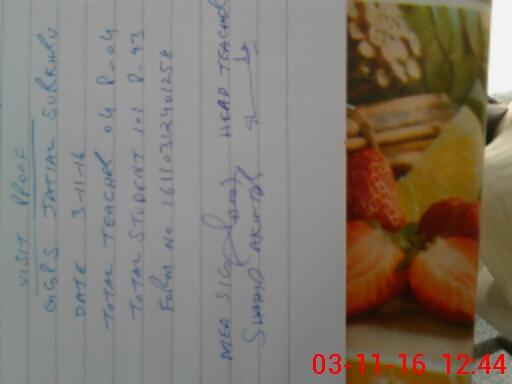 VISIT PROOF
GGPS JATIAL SURKHRU
DATE 3-11-16
TOTAL TEACHER 04 P-04
TOTAL STUDENT 101 P-93
FORM No 16110312401258
MEA SIG HEAD TEACHER
SHAHID AKHTAR
03-11-16 12:44